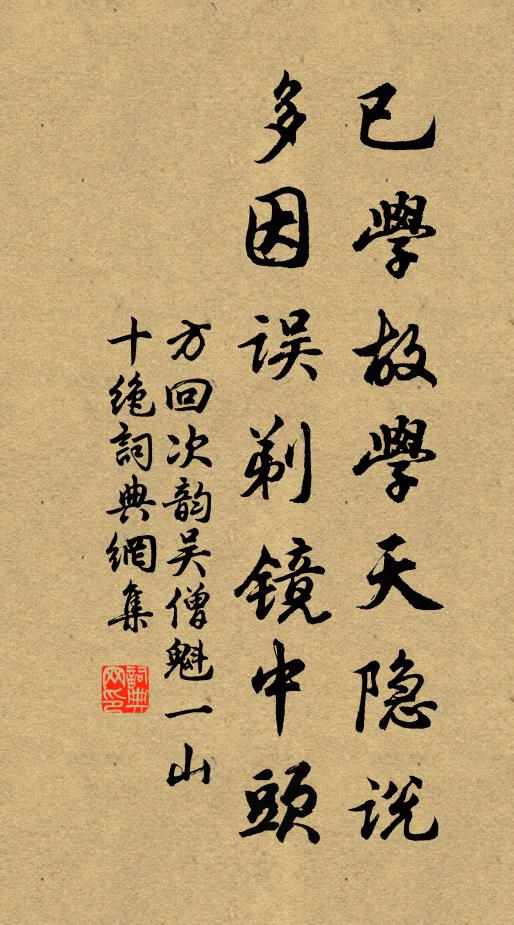 已學故學天隐説
多因误剃镜中頭
方回次韵吴僧魁一山
十绝詞典網集
詞典網印